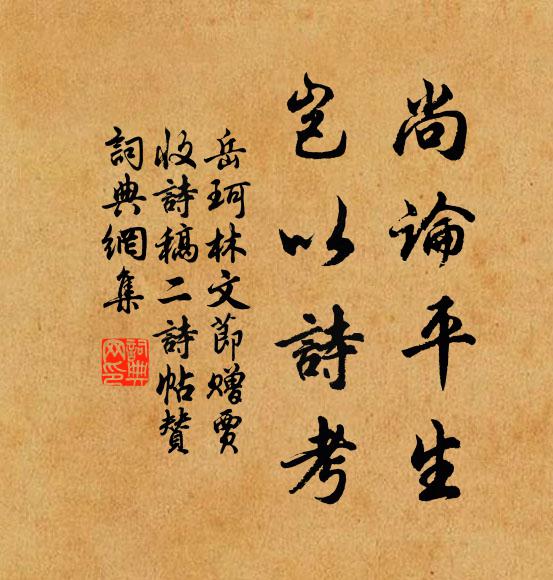 尚論平生
豈以詩考
岳珂林文節贈賈
收詩稿二詩帖贊
詞典網集
詞典
网印